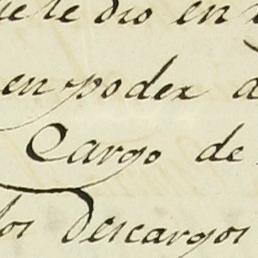 se le dio en
en poder
Cargo de
los Descargos